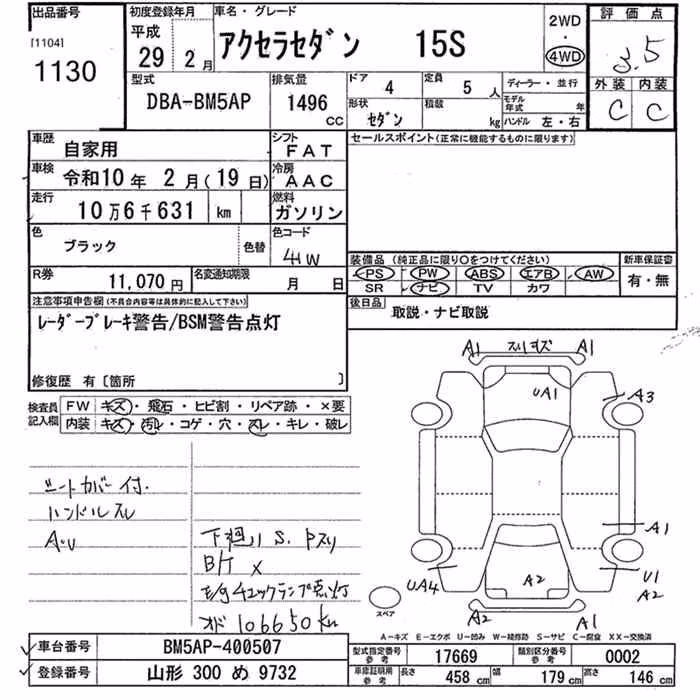 出品番号 初度登録年月 車名・グレード 2WD 評価点
[1104] 平成 ・
1130 29年 2月 アクセラセダン 15S 4WD 3.5
型式 排気量 ドア 4 定員 5人 ディーラー・並行 外装 内装
DBA-BM5AP 1496 CC 形状 セダン 積載 kg モデル年式 年 C C
ハンドル 左・右
車歴 自家用 シフト FAT セールスポイント(正常に機能するものに限ります)
車検 令和10年 2月(19日) 冷房 AAC
走行 10万6千631 km 燃料 ガソリン
色 ブラック 色替 色コード 41W
装備品 (純正品に限り○をつけてください) 新車保証書
PS PW ABS エアB AW 有・無
SR ナビ TV カワ
R券 11,070円 名変通知期限 月 日
後日品 取説・ナビ取説
注意事項申告欄(不具合内容等は具体的に記入して下さい)
レーダーブレーキ警告/BSM警告点灯
修復歴 有〔箇所 〕
検査員記入欄 FW キズ・飛石・ヒビ割・リペア跡・×要
内装 キズ・汚レ・コゲ・穴・スレ・キレ・破レ
シートカバー付.
ハンドルスレ
下廻り S. Pスリ
B片 ×
E/gチェックランプ点灯
オド 106650km
A1 スリキズ A1
UA1
A3
A1
UA4
U1
A2
A2
A2
A1
スペア
A―キズ E―エクボ U―凹み W―補修跡 S―サビ C―腐食 XX―交換済
車台番号 BM5AP-400507 型式指定番号 参考 17669 類別区分番号 参考 0002
登録番号 山形 300 め 9732 車庫証明用 参考 長さ 458 cm 幅 179 cm 高さ 146 cm